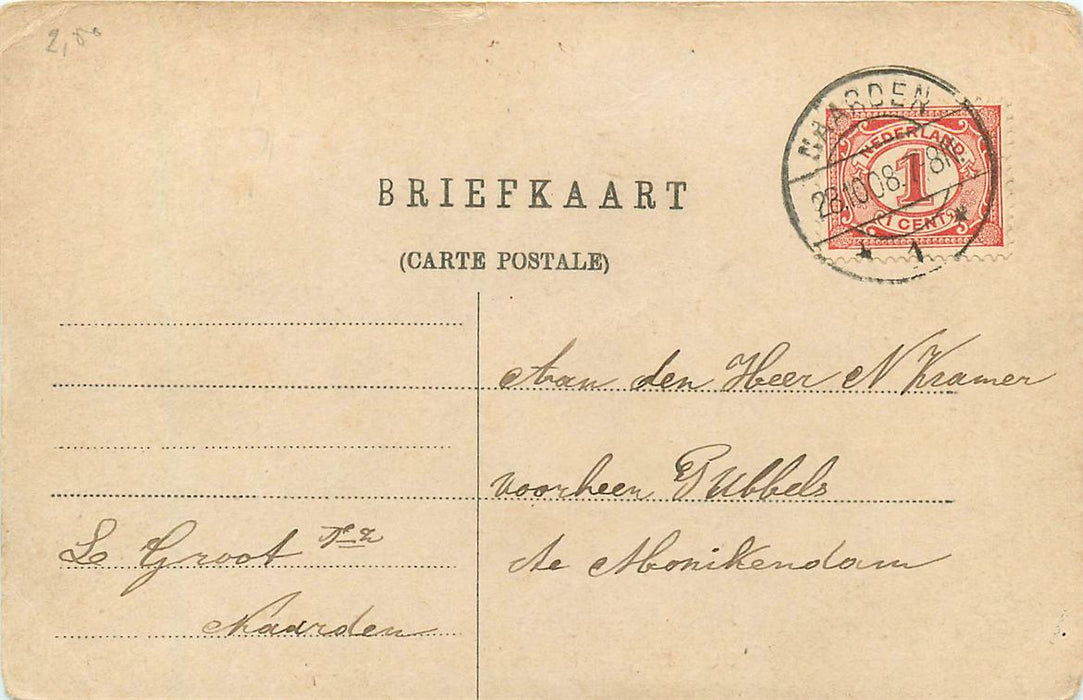 2,50
NAARDEN
NEDERLAND.
28.10 08. 7-8N.
1
1 CENT
1
BRIEFKAART
(CARTE POSTALE)
Aan den Heer N Kramer
voorheen Gubbels
te Monikendam
L. Groot
Naarden